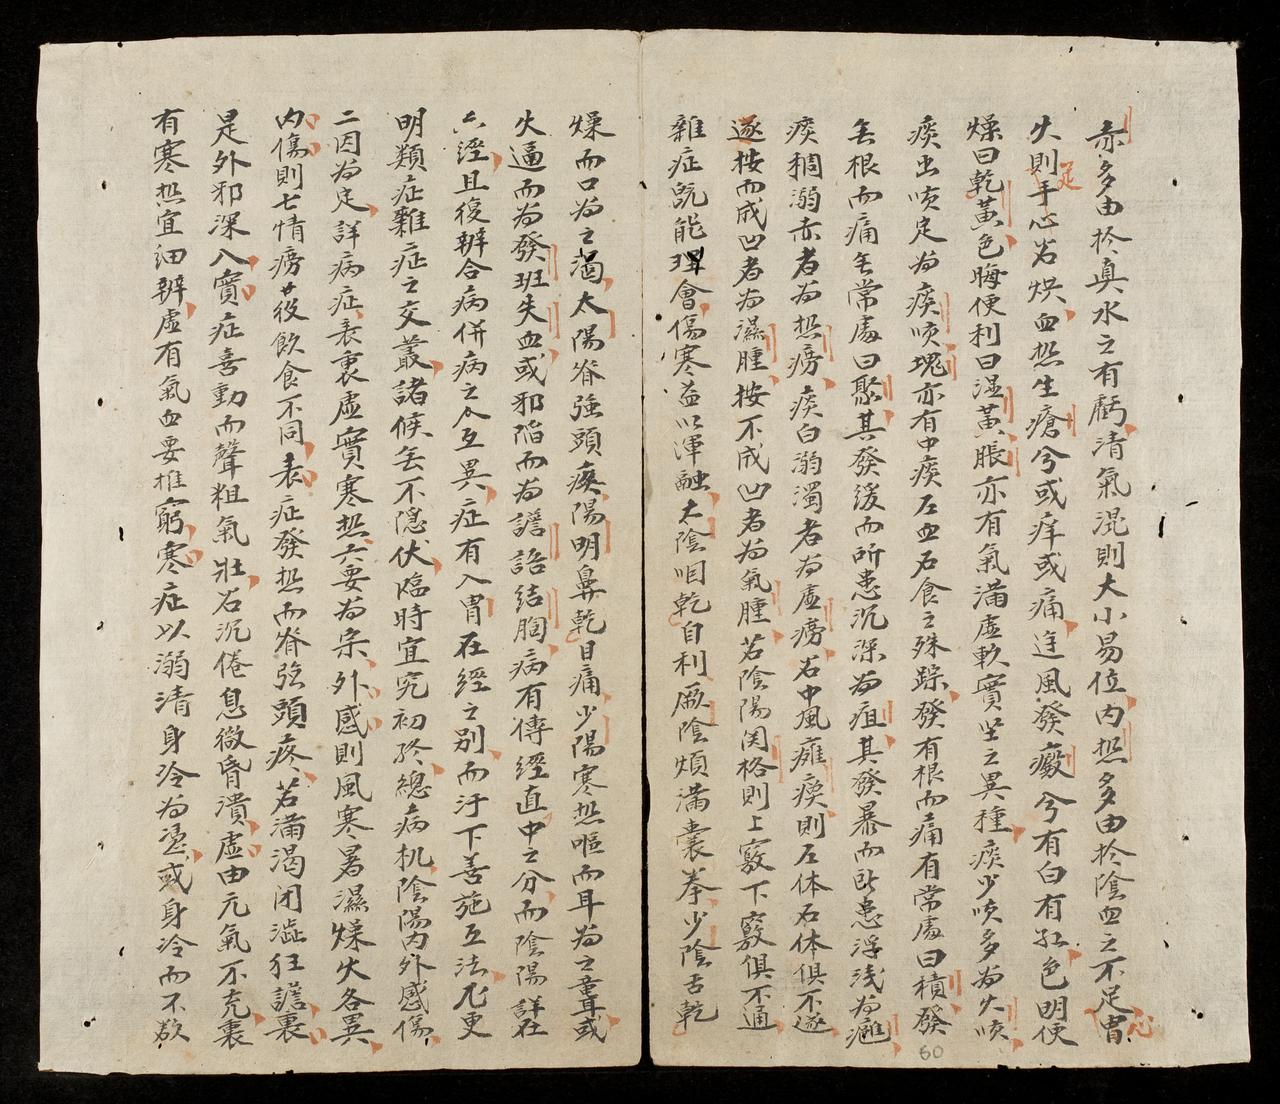 赤多由於真水之有虧清氣混則大小易位内热多由於陰血之不足胃心
火則手足心若烘血热生瘡兮或痒或痛逢風發癜兮有白有紅色明便
燥曰乾黃色晦便利曰湿黃脹亦有氣滿虛軟實坚之異種痰少咳多為火咳
痰出咳定為痰咳塊亦有中痰左血右食之殊踪發有根而痛有常處曰積發
無根而痛無常處曰聚其發缓而所患沉深為疽其發暴而所患浮浅為癰
痰稠溺赤者為热痨痰白溺濁者為虛痨若中風癱瘓則左体右体俱不遂
遂按而成凹者為濕腫按不成凹者為氣腫若陰陽関格則上竅下竅俱不通
雜症既能理會傷寒益以渾融太陰咽乾自利厥陰煩滿囊拳少陰舌乾
燥而口為之渴太陽脊強頭疼陽明鼻乾目痛少陽寒热嘔而耳為之聾或
火逼而為發班失血或邪陷而為譫語結胸病有傳經直中之分而陰陽詳在
六經且復辦合病併病之八互異症有入胃在經之別而汗下善施互法尤更
明類症雜症之交叢諸候無不隱伏臨時宜究初終總病机陰陽内外感傷
二因為定詳病症表裏虛實寒热六要為宗外感則風寒暑濕燥火各異
内傷則七情痨役飲食不同表症發热而脊強頭疼若滿渴闭澁狂譫裏
是外邪深入實症喜動而聲粗氣壯若沉倦息微昏潰虛由元氣不充裏
有寒热宜細辦虛有氣血要推窮寒症以溺清身冷為憑或身冷而不欬
60